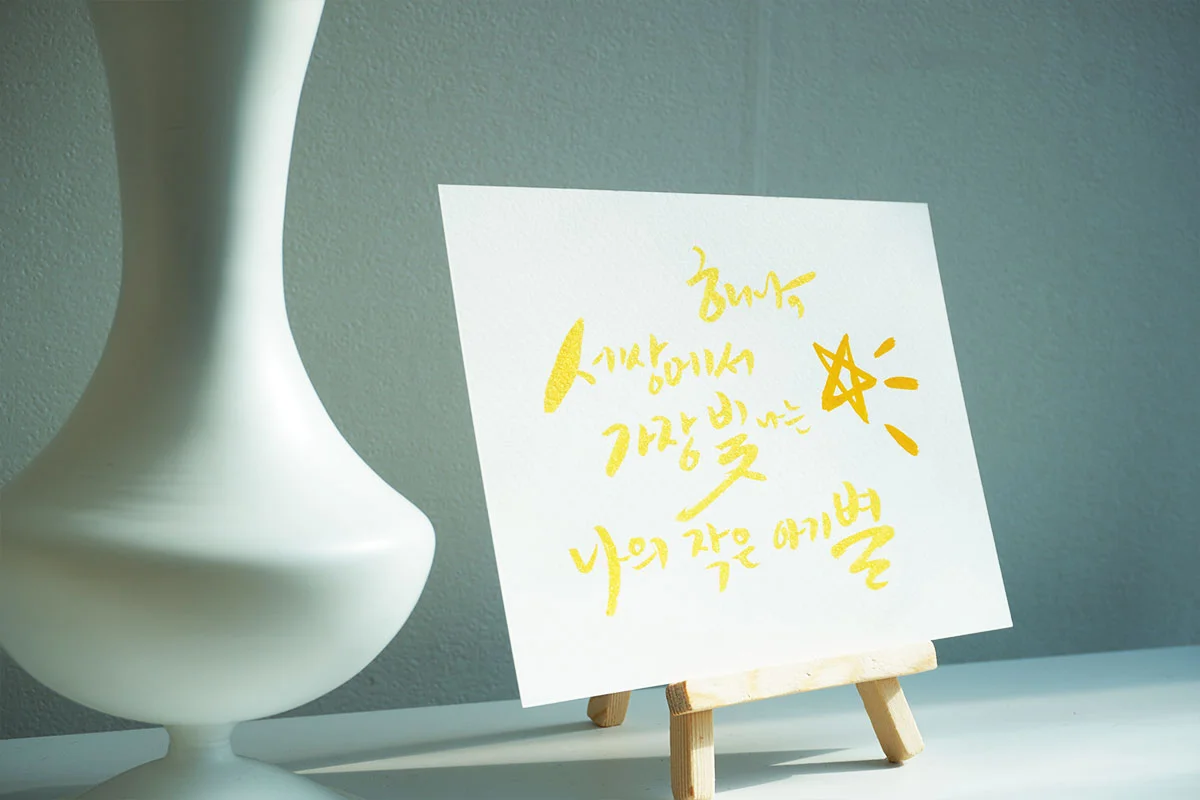 세상에서
가장 빛나는
나의 작은 아기별